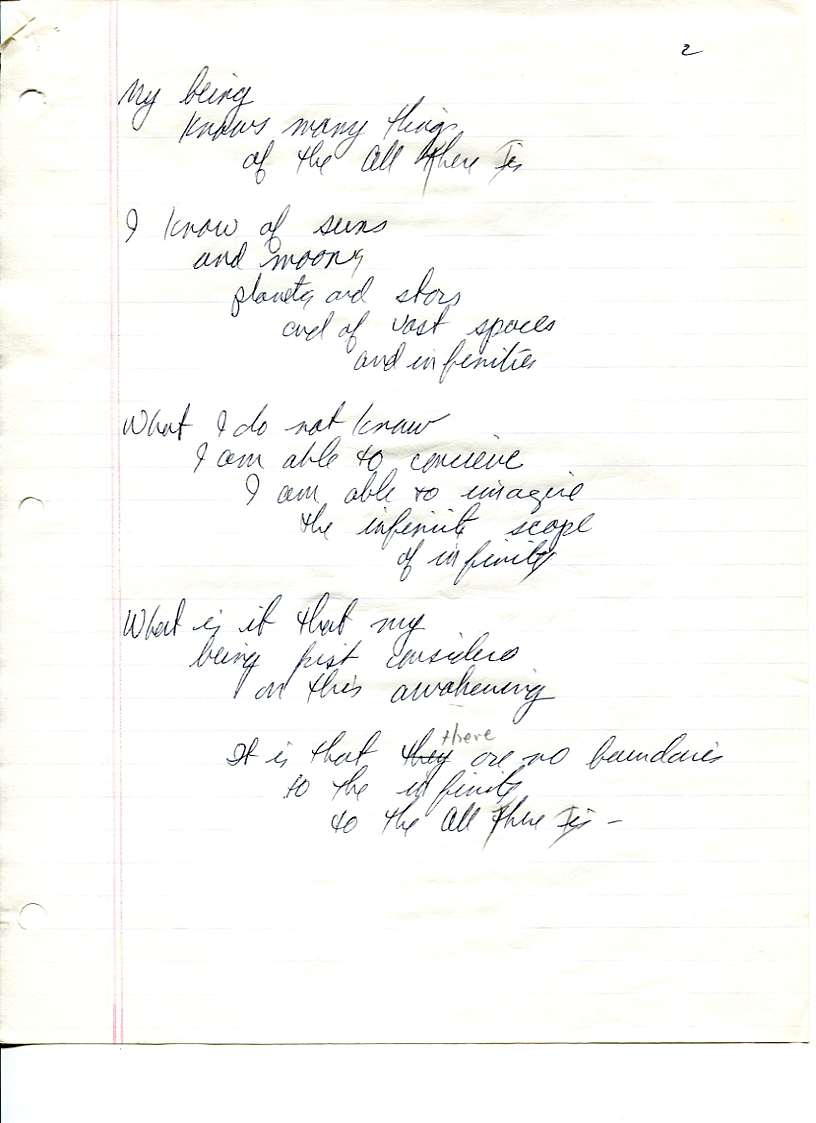 2
My being
knows many things
of the All There Is
I know of suns
and moons
planets and stars
and of vast spaces
and infinities
What I do not know
I am able to concieve
I am able to imagine
the infinite scope
of infinity
What is it that my
being first considers
on this awakening
there
It is that they are no boundaries
to the infinite
to the All There Is -